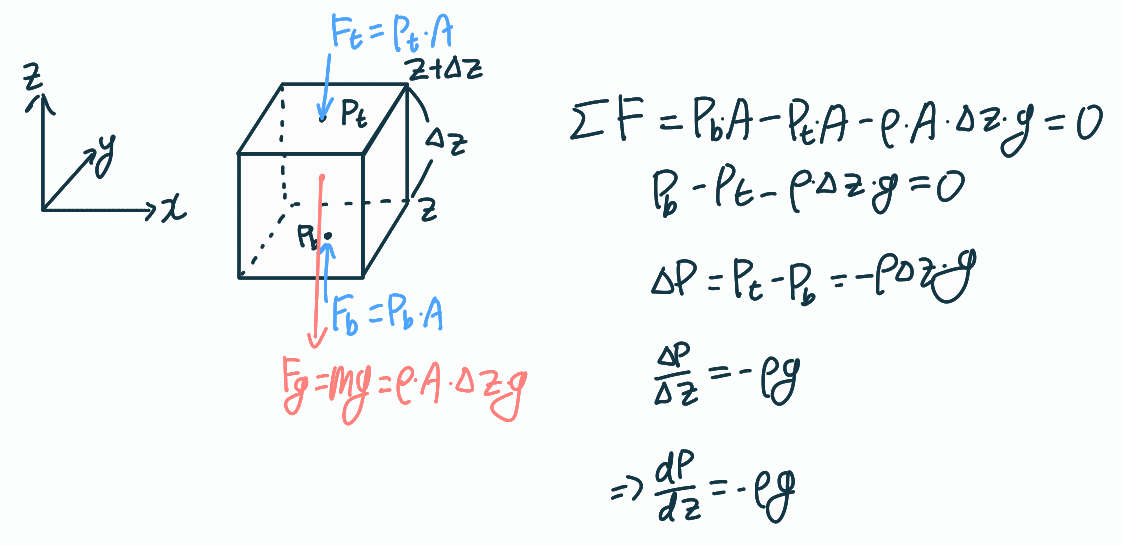 F_t = P_t·A
z+Δz
z
P_t
y
Δz
x
z
P_b
F_b = P_b·A
F_g = mg = ρ·A·Δz·g
ΣF = P_b·A − P_t·A − ρ·A·Δz·g = 0
P_b − P_t − ρ·Δz·g = 0
ΔP = P_t − P_b = −ρΔz·g
ΔP/Δz = −ρg
⇒ dP/dz = −ρg